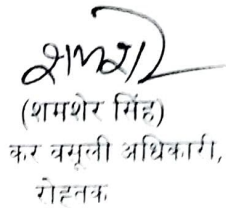 शमशेर
(शमशेर सिंह)
कर वसूली अधिकारी,
रोहतक